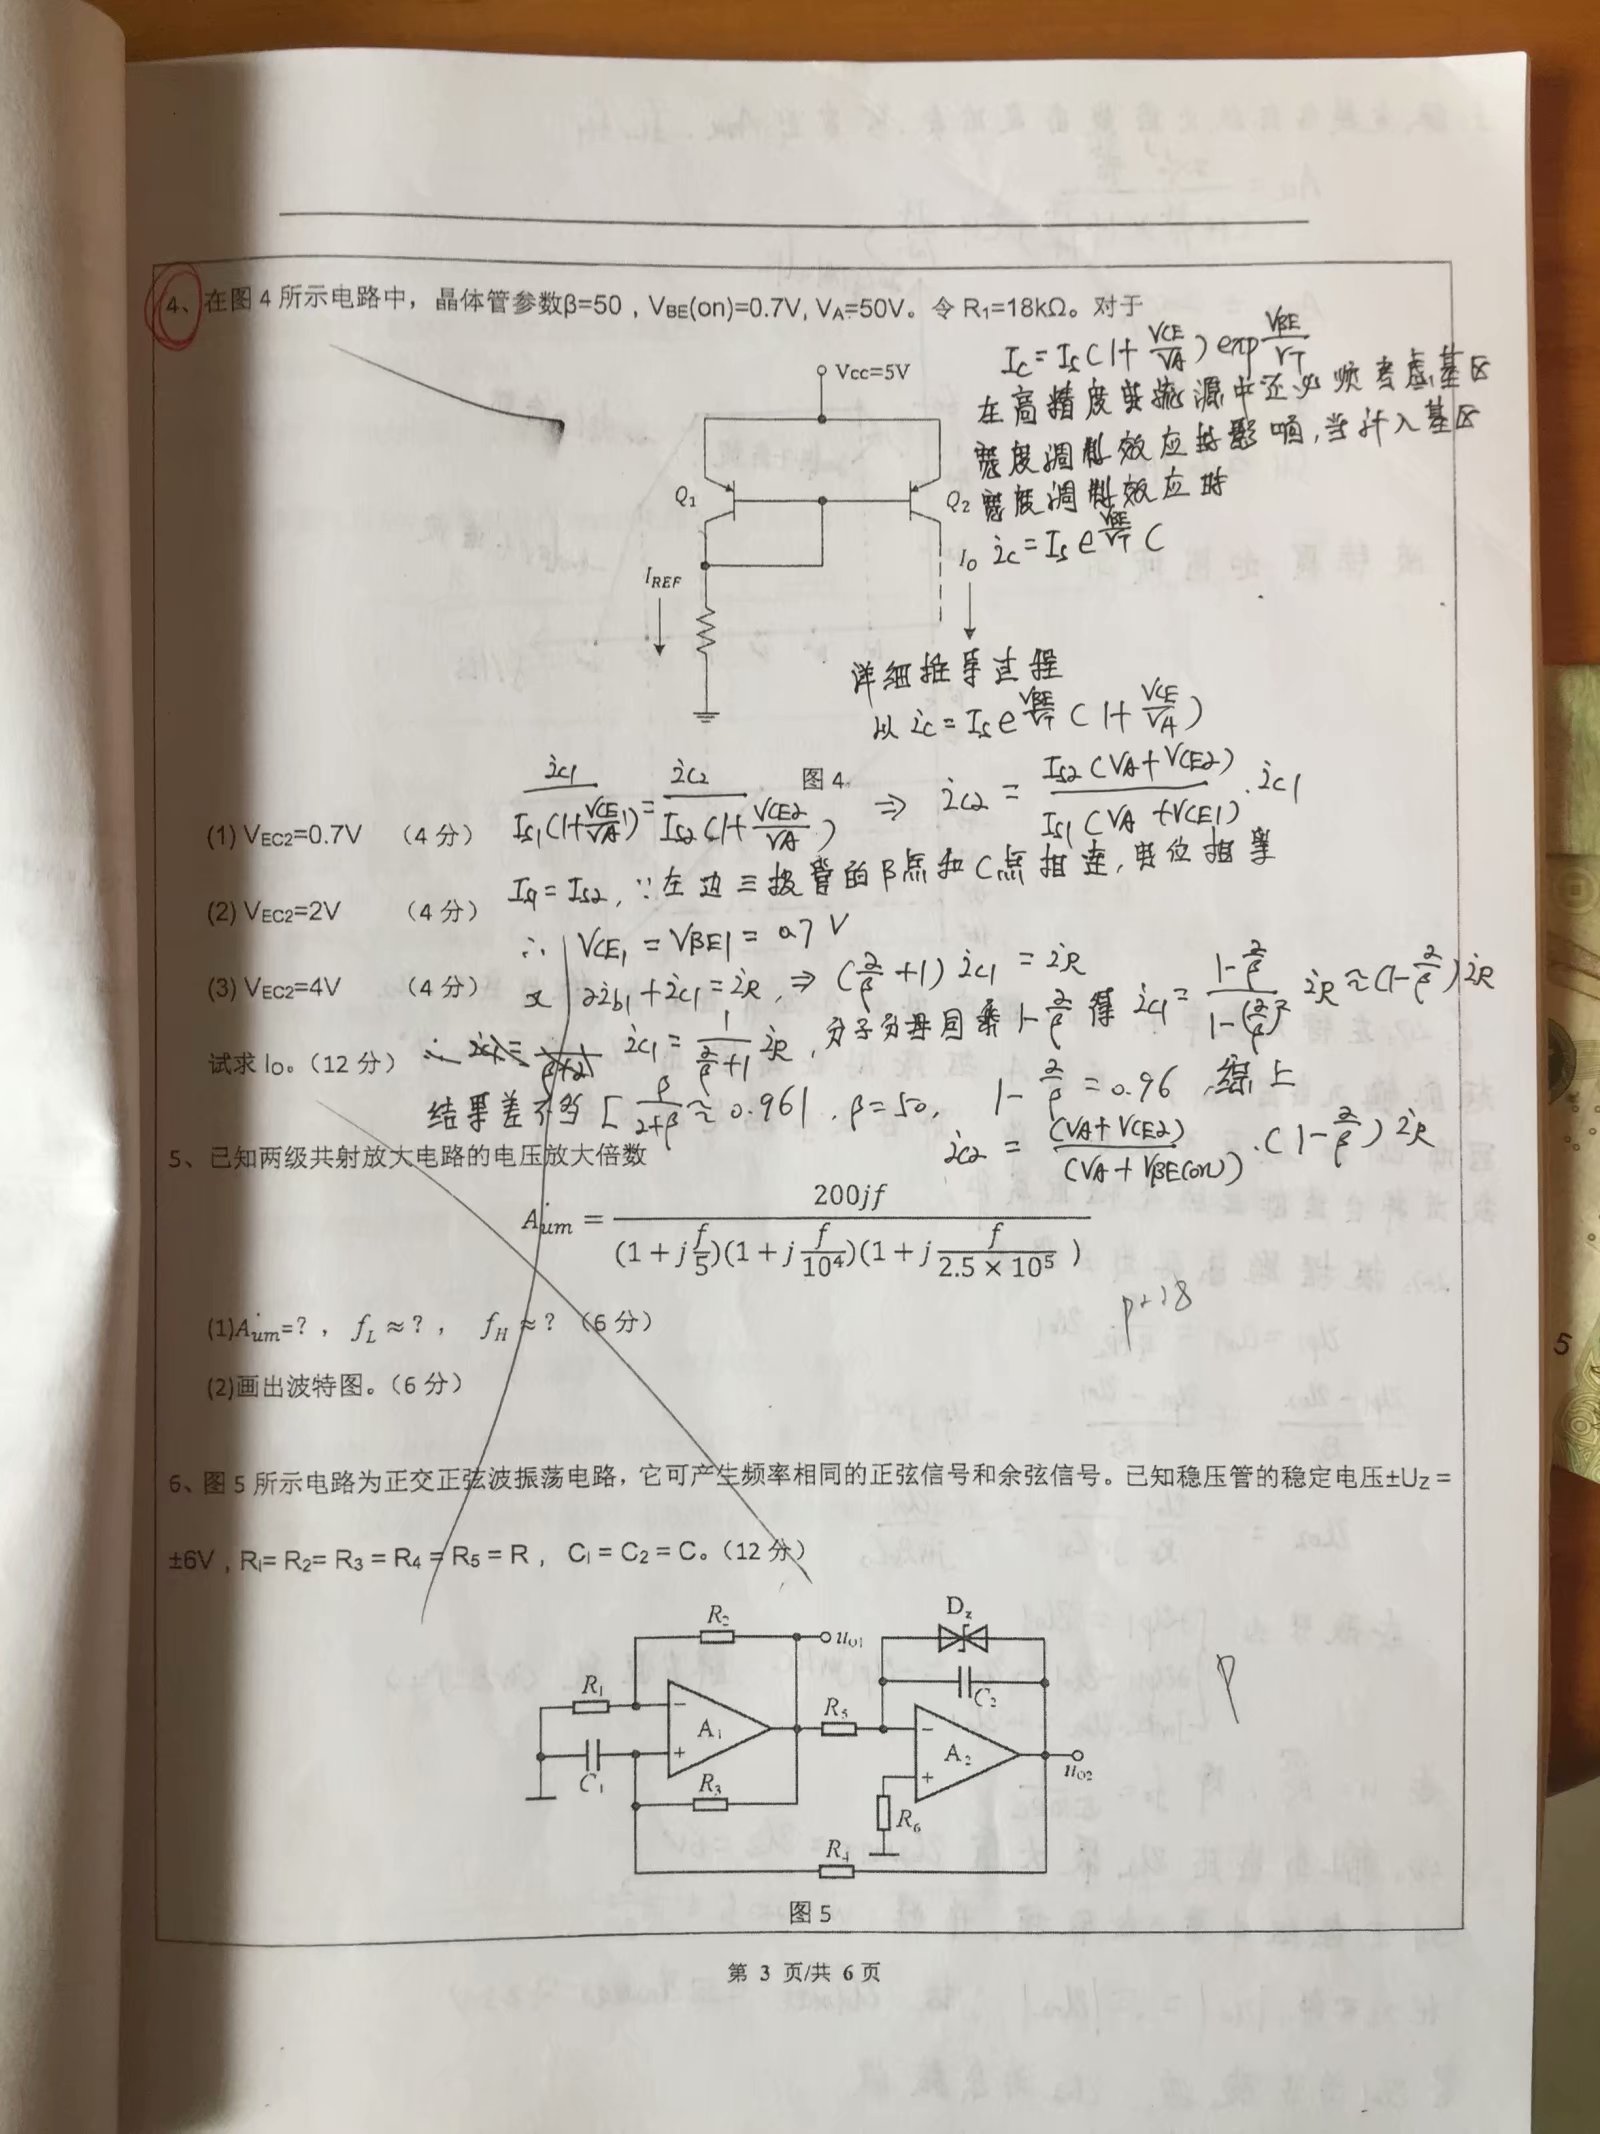 4、在图 4 所示电路中，晶体管参数β=50，VBE(on)=0.7V, VA=50V。令 R₁=18kΩ。对于
Ic = Is(1+VCE/VA) exp VBE/VT
在高精度电流源中还必须考虑基区
宽度调制效应的影响,当计入基区
宽度调制效应时
ic = Is e^(VBE/VT) (
Vcc=5V
Q₁
Q₂
I_O
I_REF
详细推导过程
以 ic = Is e^(VBE/VT) (1+VCE/VA)
图 4
ic1/(Is1(1+VCE1/VA)) = ic2/(Is2(1+VCE2/VA)) ⇒ ic2 = Is2(VA+VCE2)/(Is1(VA+VCE1)) · ic1
(1) VEC2=0.7V （4 分）
Is1 = Is2, ∵左边三极管的B点和C点相连,电位相等
(2) VEC2=2V （4 分）
∴ VCE1 = VBE1 = 0.7V
(3) VEC2=4V （4 分）
又 2ib1+ic1=iR, ⇒ (2/β+1) ic1 = iR
试求 Io。（12 分）
ic1 = 1/(2/β+1) iR, 分子分母同乘 1-2/β 得 ic1 = (1-2/β)/(1-(2/β)²) iR ≈ (1-2/β) iR
结果差不多 [β/(2+β) ≈ 0.961, β=50, 1-2/β = 0.96, 综上
ic2 = (VA+VCE2)/(VA+VBE(on)) · (1-2/β) iR
5、已知两级共射放大电路的电压放大倍数
Ȧum = 200jf/((1+j f/5)(1+j f/10⁴)(1+j f/(2.5×10⁵)))
P228
(1)Ȧum=?， fL≈?， fH≈?（6 分）
(2)画出波特图。（6 分）
6、图 5 所示电路为正交正弦波振荡电路，它可产生频率相同的正弦信号和余弦信号。已知稳压管的稳定电压±Uz =
±6V，R₁= R₂= R₃ = R₄ = R₅ = R， C₁ = C₂ = C。（12 分）
R₂
u_O1
D_z
R₁
A₁
C₁
R₃
R₅
C₂
A₂
u_O2
R₆
R₄
P
图 5
第 3 页/共 6 页
5